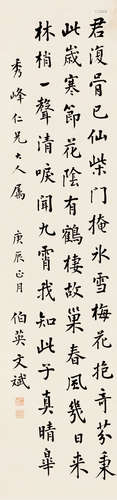 君復骨已仙柴门掩氷雪梅花抱奇芬秉
此歲寒節花陰有鶴棲故巢春風幾日来
林梢一聲清唳聞九霄找知此子真晴皋
秀峰仁兄大人属
庚辰正月 伯英文斌